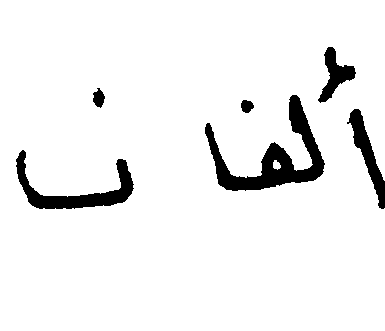 ألفان